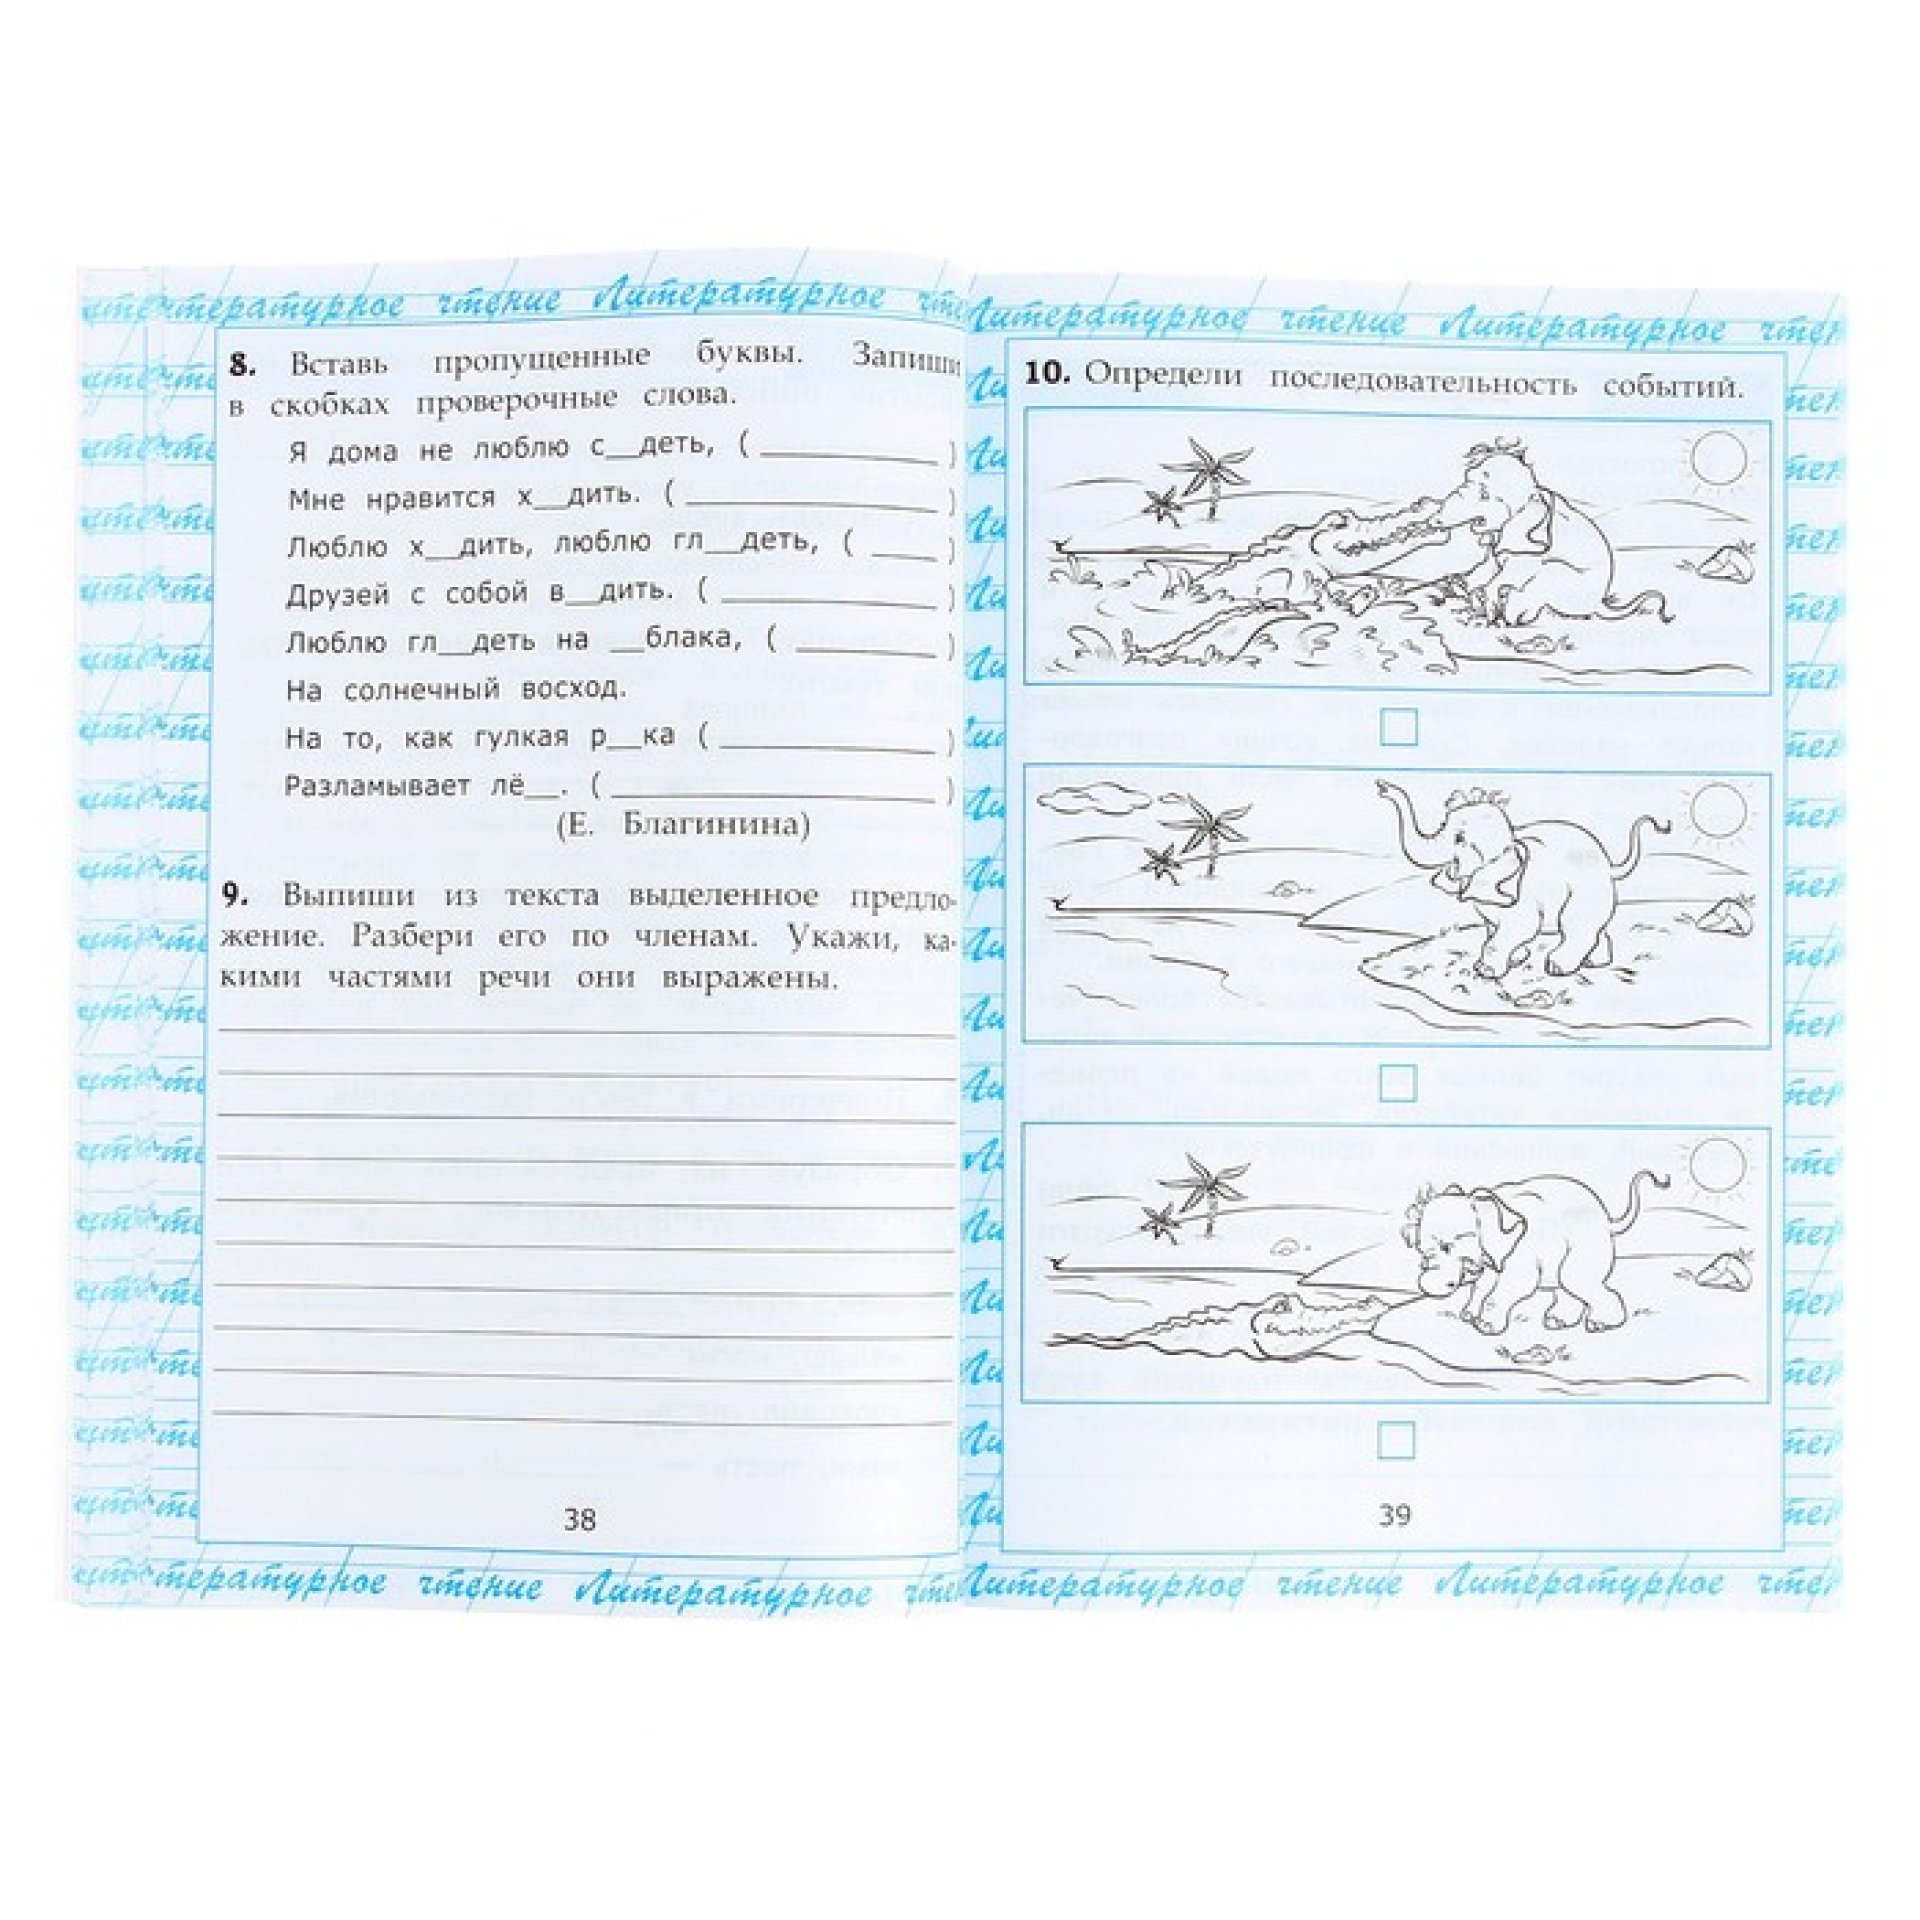 Литературное чтение Литературное
8. Вставь пропущенные буквы. Запиши
в скобках проверочные слова.
Я дома не люблю с__деть, ( ________ )
Мне нравится х__дить. ( ________ )
Люблю х__дить, люблю гл__деть, ( ____ )
Друзей с собой в__дить. ( ________ )
Люблю гл__деть на __блака, ( ________ )
На солнечный восход.
На то, как гулкая р__ка ( ________ )
Разламывает лё__. ( ________ )
(Е. Благинина)
9. Выпиши из текста выделенное предло-
жение. Разбери его по членам. Укажи, ка-
кими частями речи они выражены.
38
чтение Литературное
Литературное чтение Литературное
10. Определи последовательность событий.
39
Литературное чтение Литературное